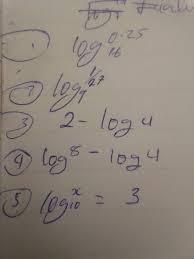 ① log₁₆^0.25
② log₉^1/27
③ 2 - log 4
④ log 8 - log 4
⑤ log₁₀^x = 3